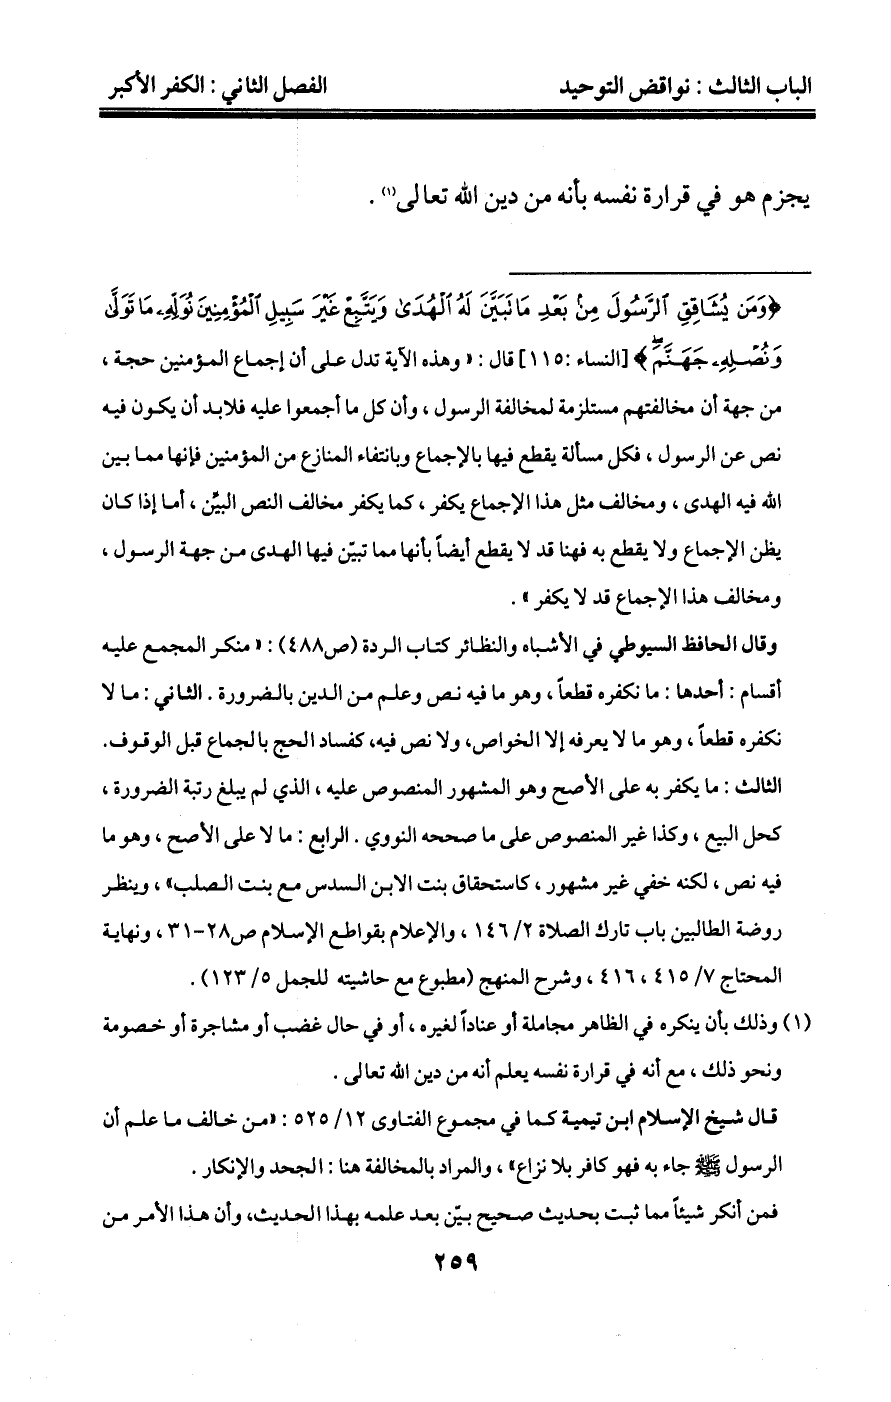 الباب الثالث : نواقض التوحيد
الفصل الثاني : الكفر الأكبر
يجزم هو في قرارة نفسه بأنه من دين الله تعالى(١) .
﴿وَمَن يُشَاقِقِ ٱلرَّسُولَ مِنۢ بَعْدِ مَا تَبَيَّنَ لَهُ ٱلْهُدَىٰ وَيَتَّبِعْ غَيْرَ سَبِيلِ ٱلْمُؤْمِنِينَ نُوَلِّهِۦ مَا تَوَلَّىٰ
وَنُصْلِهِۦ جَهَنَّمَۖ﴾ [النساء :١١٥] قال : « وهذه الآية تدل على أن إجماع المؤمنين حجة ،
من جهة أن مخالفتهم مستلزمة لمخالفة الرسول ، وأن كل ما أجمعوا عليه فلابد أن يكون فيه
نص عن الرسول ، فكل مسألة يقطع فيها بالإجماع وبانتفاء المنازع من المؤمنين فإنها مما بين
الله فيه الهدى ، ومخالف مثل هذا الإجماع يكفر ، كما يكفر مخالف النص البيّن ، أما إذا كان
يظن الإجماع ولا يقطع به فهنا قد لا يقطع أيضاً بأنها مما تبيّن فيها الهدى من جهة الرسول ،
ومخالف هذا الإجماع قد لا يكفر » .
وقال الحافظ السيوطي في الأشباه والنظائر كتاب الردة (ص٤٨٨) : « منكر المجمع عليه
أقسام : أحدها : ما نكفره قطعاً ، وهو ما فيه نص وعلم من الدين بالضرورة . الثاني : ما لا
نكفره قطعاً ، وهو ما لا يعرفه إلا الخواص، ولا نص فيه، كفساد الحج بالجماع قبل الوقوف.
الثالث : ما يكفر به على الأصح وهو المشهور المنصوص عليه ، الذي لم يبلغ رتبة الضرورة ،
كحل البيع ، وكذا غير المنصوص على ما صححه النووي . الرابع : ما لا على الأصح ، وهو ما
فيه نص ، لكنه خفي غير مشهور ، كاستحقاق بنت الابن السدس مع بنت الصلب» ، وينظر
روضة الطالبين باب تارك الصلاة ٢/ ١٤٦ ، والإعلام بقواطع الإسلام ص٢٨-٣١ ، ونهاية
المحتاج ٧/ ٤١٥ ، ٤١٦ ، وشرح المنهج (مطبوع مع حاشيته للجمل ٥/ ١٢٣) .
(١) وذلك بأن ينكره في الظاهر مجاملة أو عناداً لغيره ، أو في حال غضب أو مشاجرة أو خصومة
ونحو ذلك ، مع أنه في قرارة نفسه يعلم أنه من دين الله تعالى .
قال شيخ الإسلام ابن تيمية كما في مجموع الفتاوى ١٢/ ٥٢٥ : «من خالف ما علم أن
الرسول ﷺ جاء به فهو كافر بلا نزاع» ، والمراد بالمخالفة هنا : الجحد والإنكار .
فمن أنكر شيئاً مما ثبت بحديث صحيح بيّن بعد علمه بهذا الحديث، وأن هذا الأمر من
٢٥٩